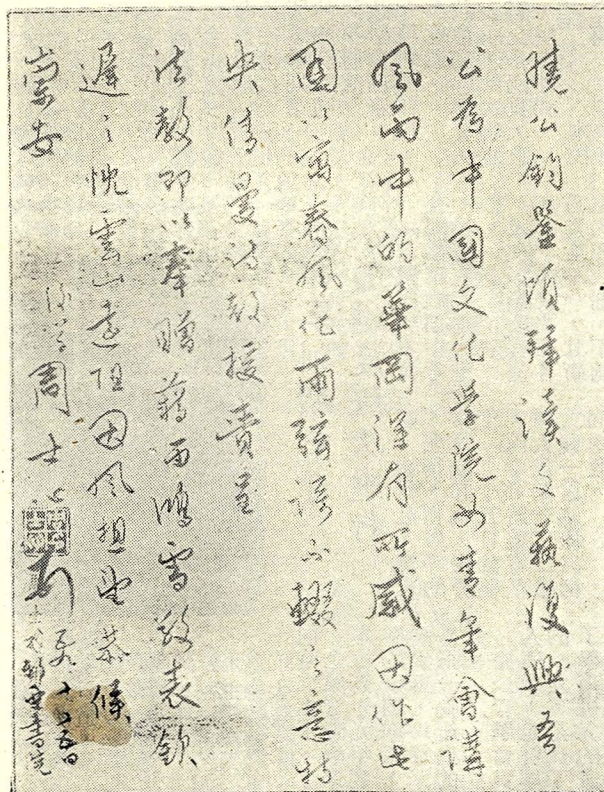 曉公鈞鑒頃拜讀文藝復興吾
公為中國文化學院女青年會講
風雨中的華岡深有所感因作此
圖以寓春風化雨弦誦不輟之意特
央倩曼詩教授賫呈
法教即以奉贈藉西鴻雪敬表欽
遲之忱雲山遠阻因風想望恭候
崇安
周士